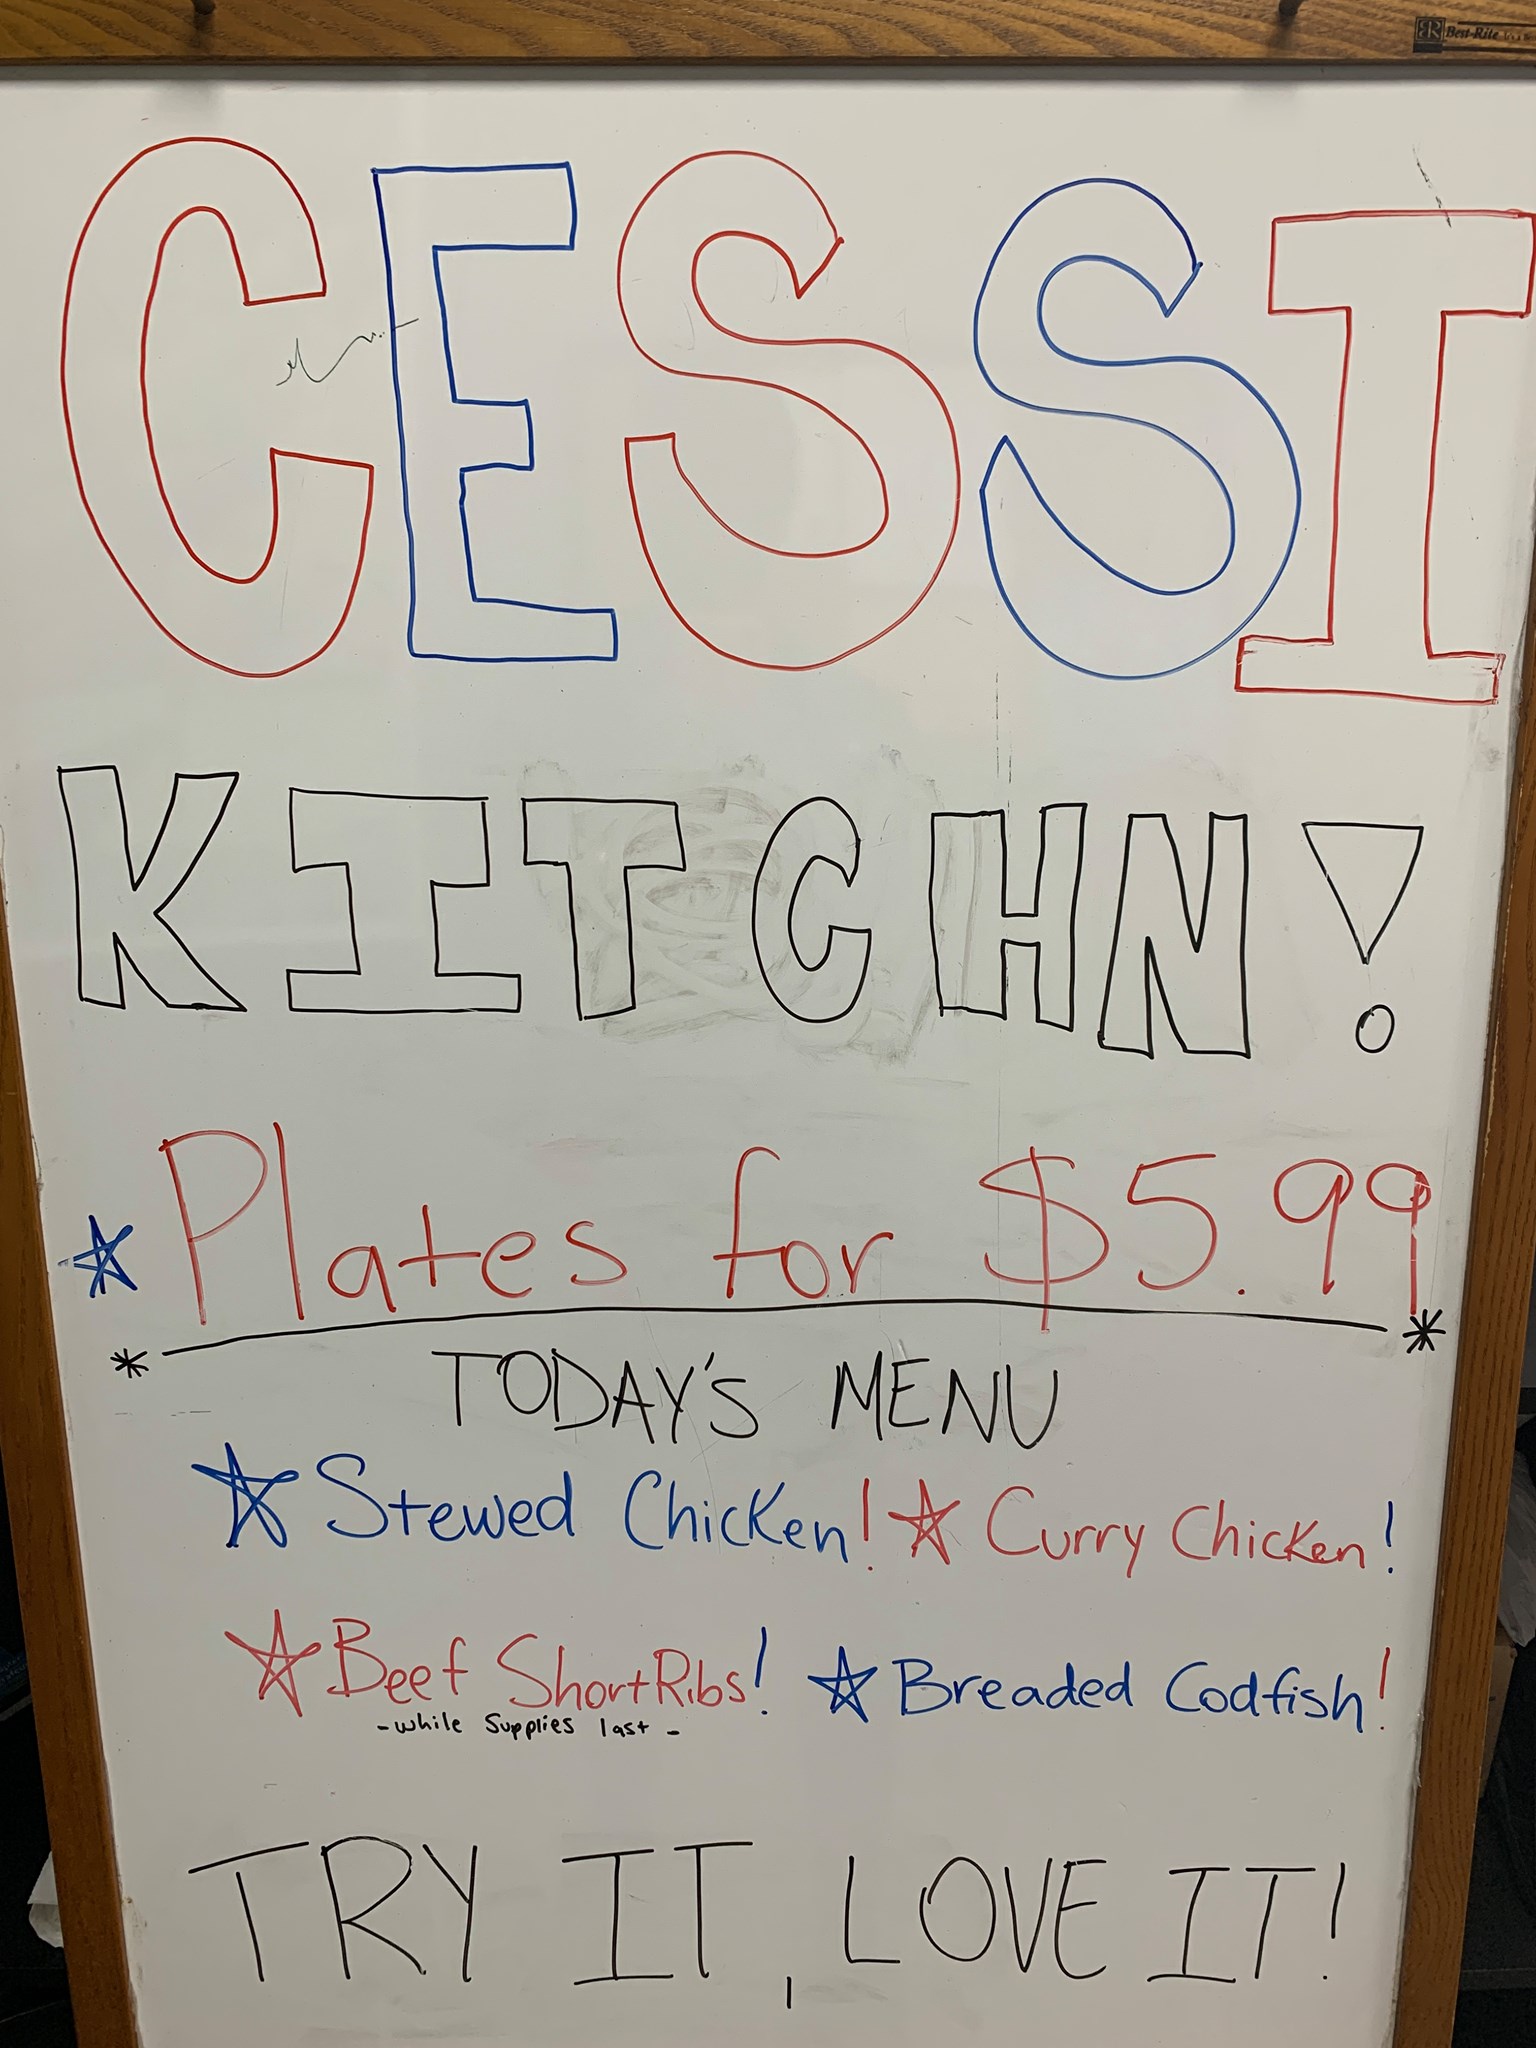 Best-Rite
CESSI
KITCHN!
Plates for $5.99
TODAY'S MENU
Stewed Chicken! Curry Chicken!
Beef Short Ribs! Breaded Codfish!
- while Supplies last -
TRY IT, LOVE IT!